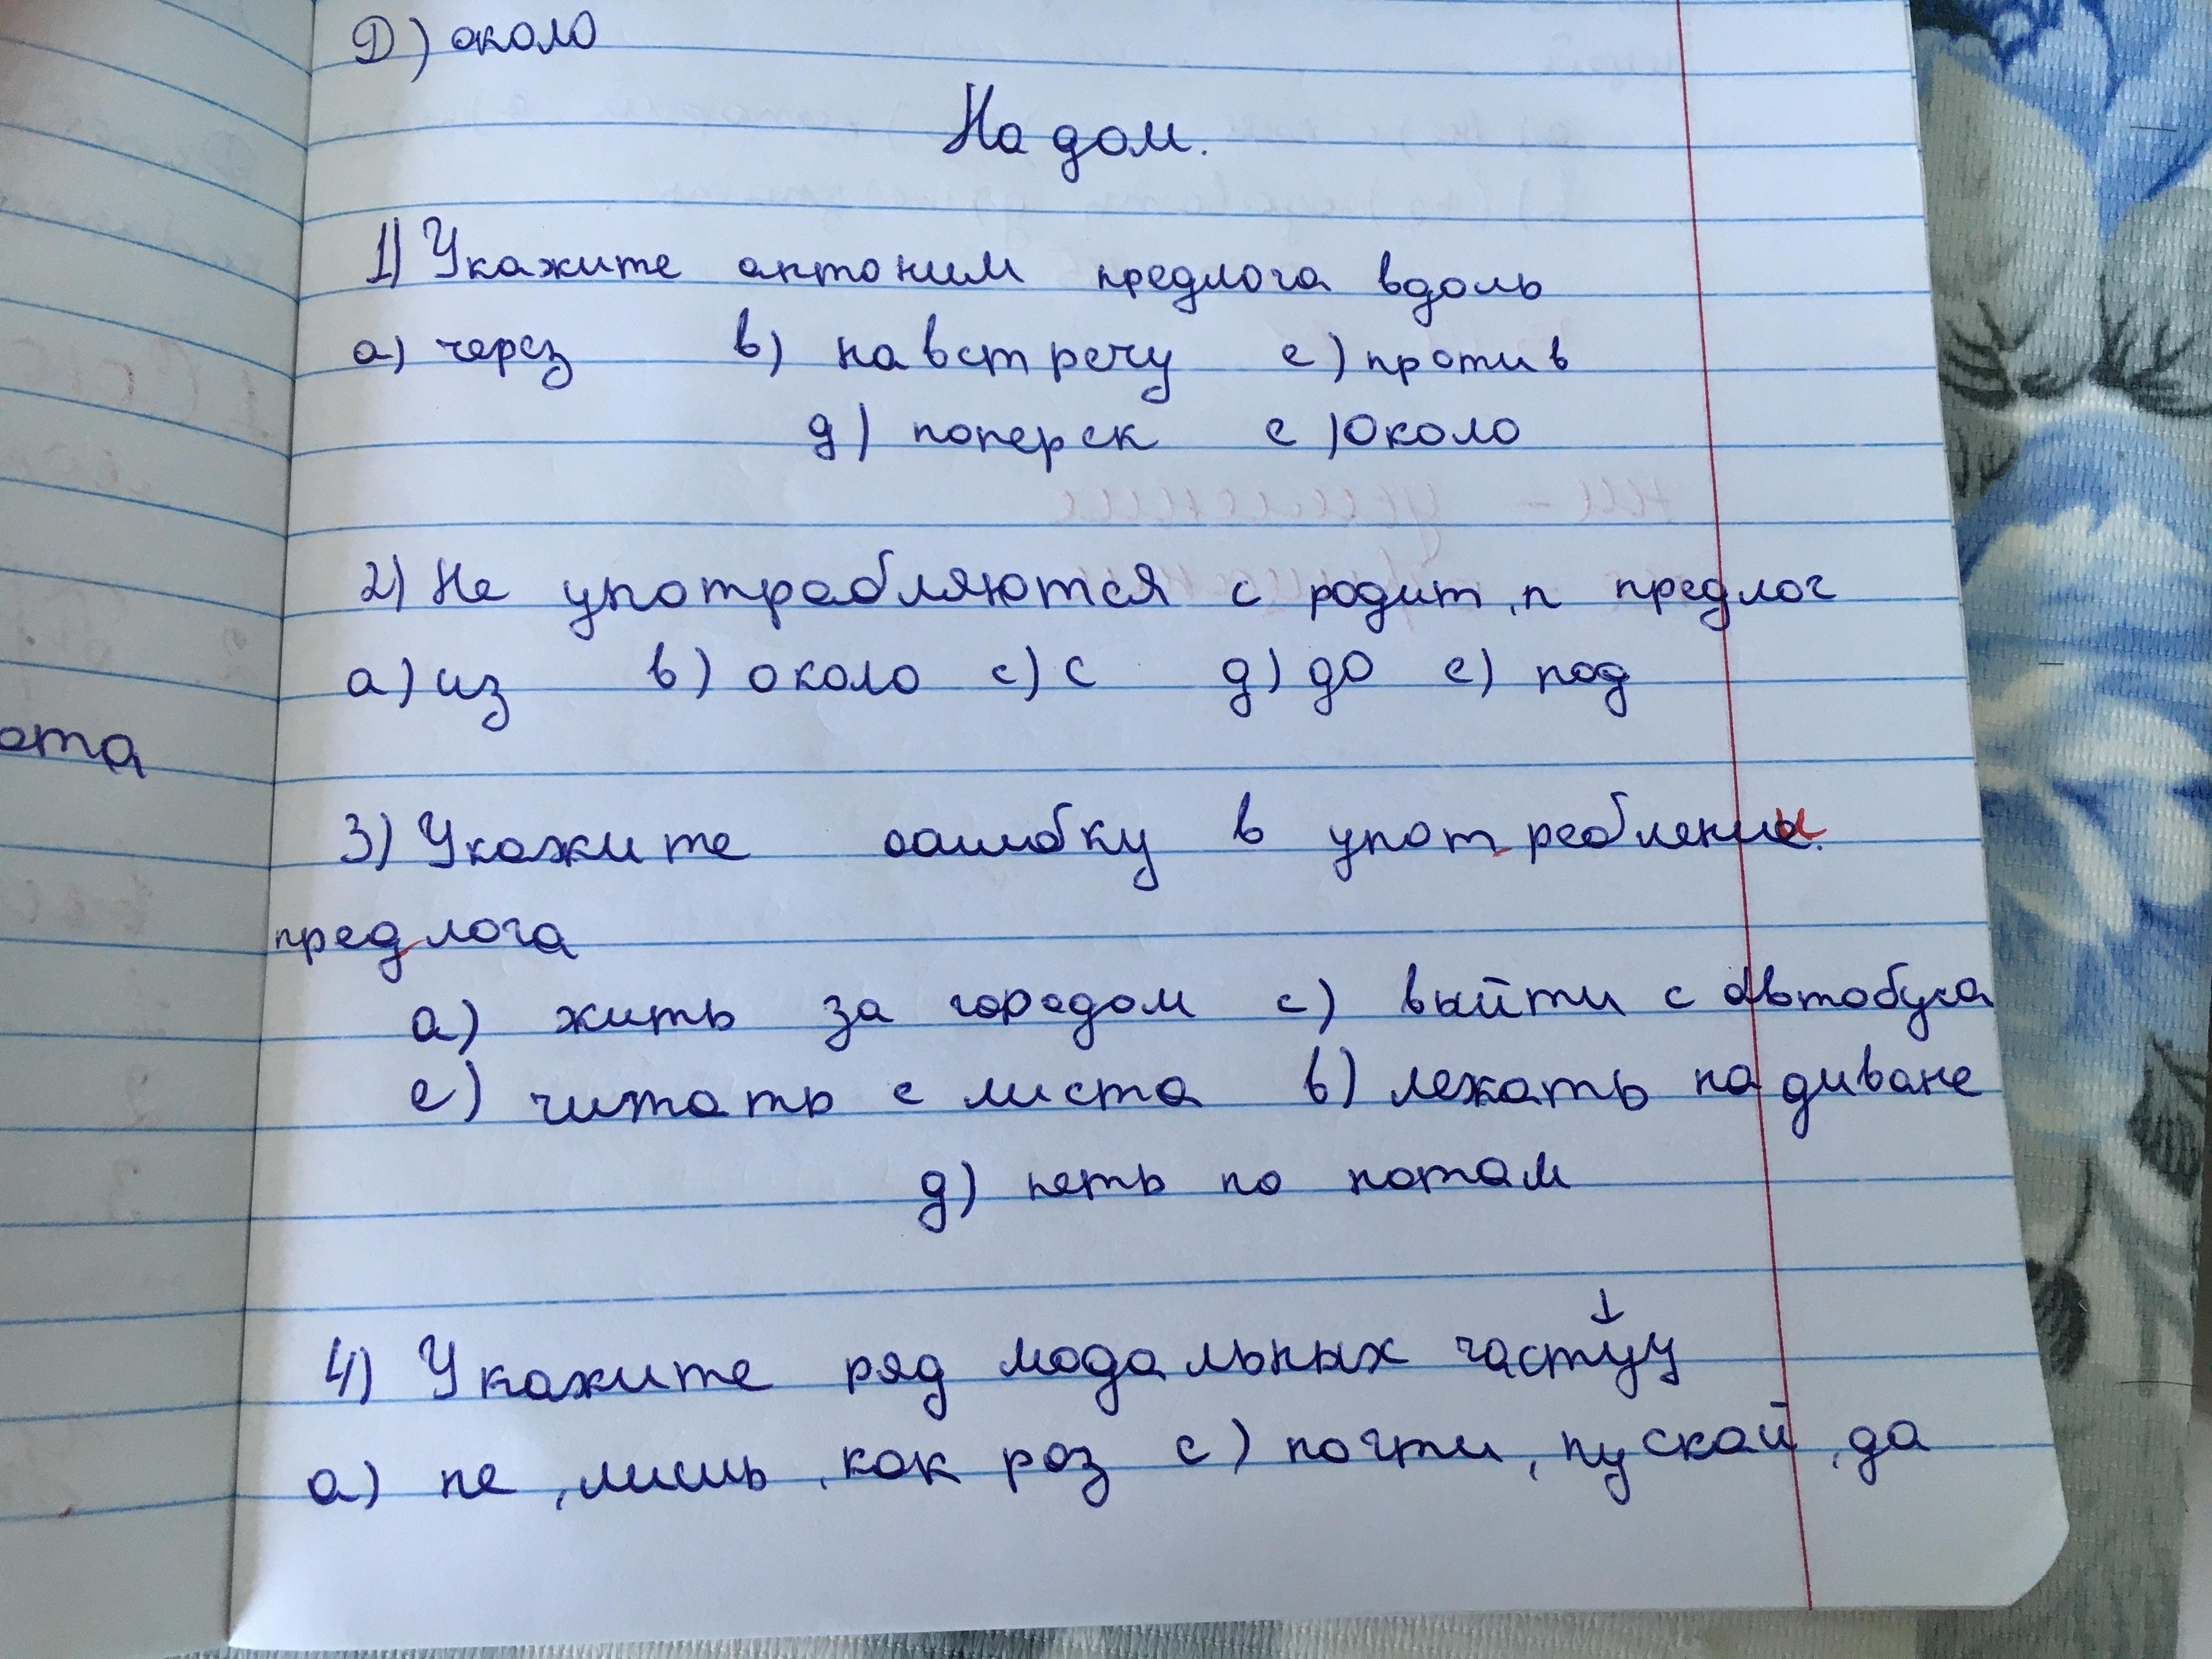 D) около
На дом.
1) Укажите антоним предлога вдоль
а) через в) навстречу с) против
д) поперек е) Около
2) Не употребляются с родит.п предлог
а) из в) около с) с д) до е) под
ота
3) Укажите ошибку в употреблении.
предлога
а) жить за городом с) выйти с автобуса
е) читать с листа в) лежать на диване
д) петь по нотам
4) Укажите ряд модальных частиц
а) не, лишь, как раз с) почти, пускай, да